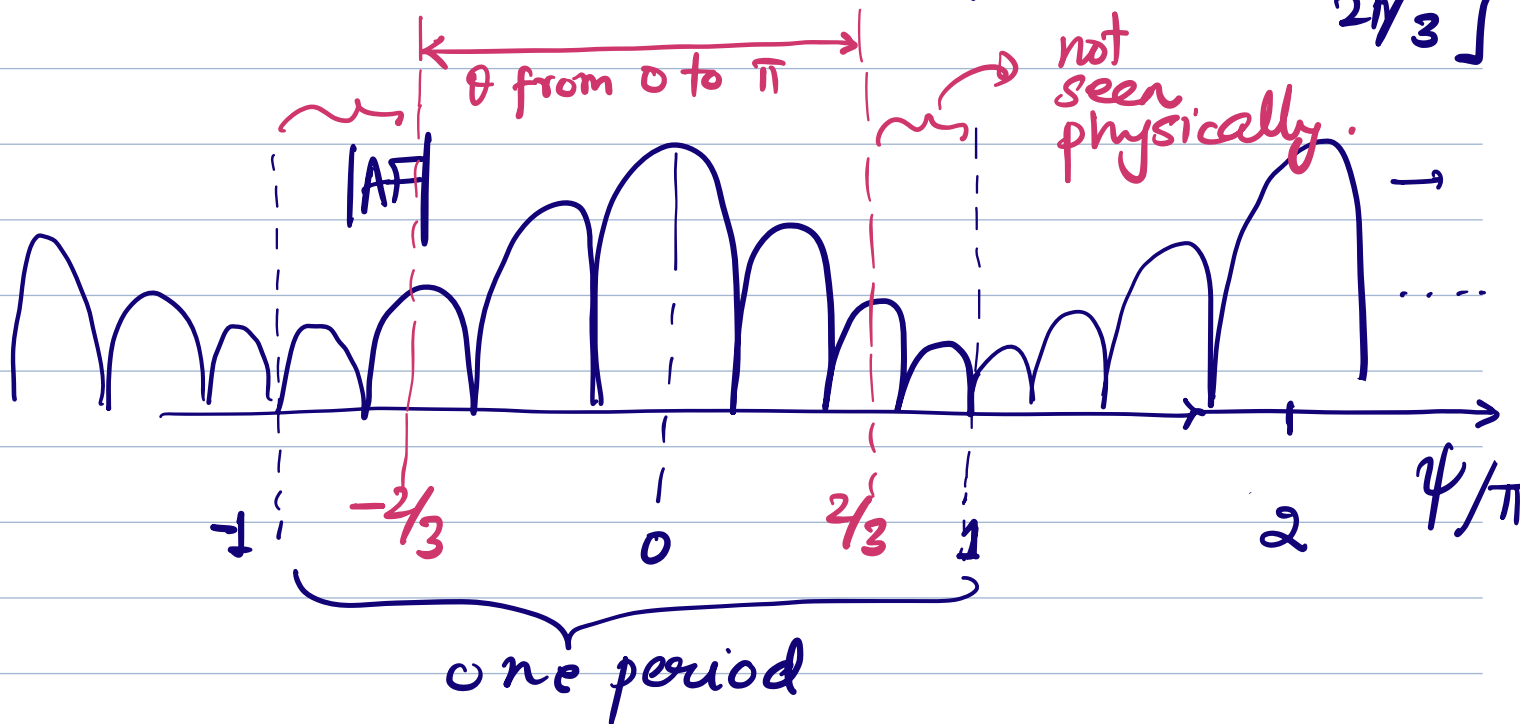 2π/3 ]
θ from 0 to π
not
seen
physically.
|AF|
-1 -2/3 0 2/3 1 2 ψ/π
one period